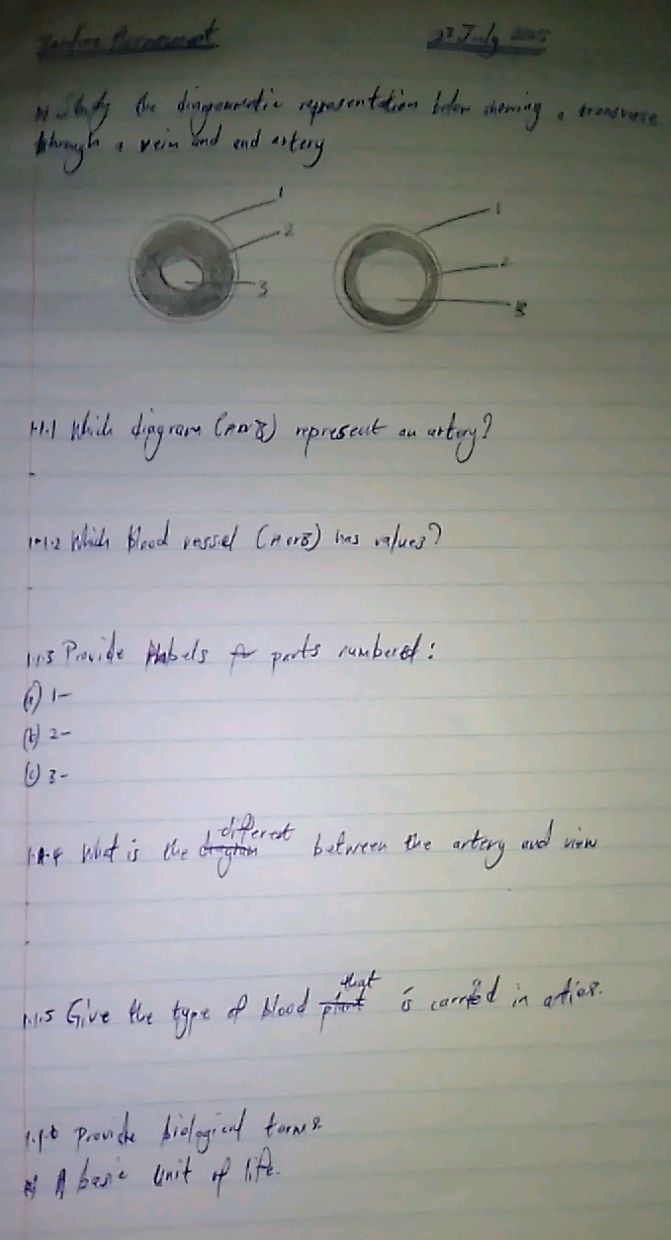 Baseline Assessment 27 July 2025
1.1 Study the diagrammatic representation below showing a transverse
through a vein and and artery
1 1
2 2
3 3
1.1.1 Which diagram (A or B) represent an artery?
1.1.2 Which blood vessel (A or B) has values?
1.1.3 Provide labels for parts numbered:
(a) 1-
(b) 2-
(c) 3-
1.1.4 What is the different between the artery and view
1.1.5 Give the type of blood that is carried in arties.
1.1.6 Provide biological terms
A basic unit of life.